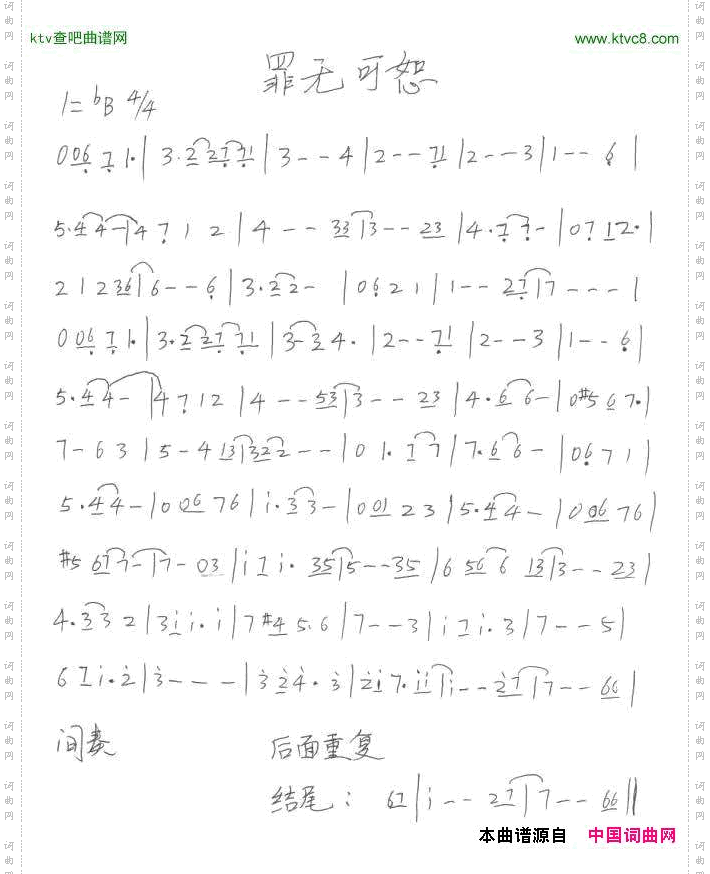 ktv查吧曲谱网 www.ktvc8.com
罪无可恕
1=bB 4/4
0 06 7 1·|3·2 27 71|3--4|2--71|2--3|1--6|
5·44-|4712|4--33|3--23|4·77-|0712·|
21236|6--6|3·22-|0621|1--27|7---|
0 06 7 1·|3·2 27 71|3-34·|2--71|2--3|1--6|
5·44-|4712|4--53|3--23|4·66-|0#567·|
7-63|5-413|322--|01·77|7·66-|0671|
5·44-|00676|i·33-|00123|5·44-|00676|
#5677-|7-03|i7i·35|5--35|6566 13|3--23|
4·332|3ii·i|7#45·6|7--3|i7i·3|7--5|
67i·2|3---|324·3|2i7·ii|i--27|7--66|
间奏 后面重复
结尾: 67|i--27|7--66‖
本曲谱源自 中国词曲网